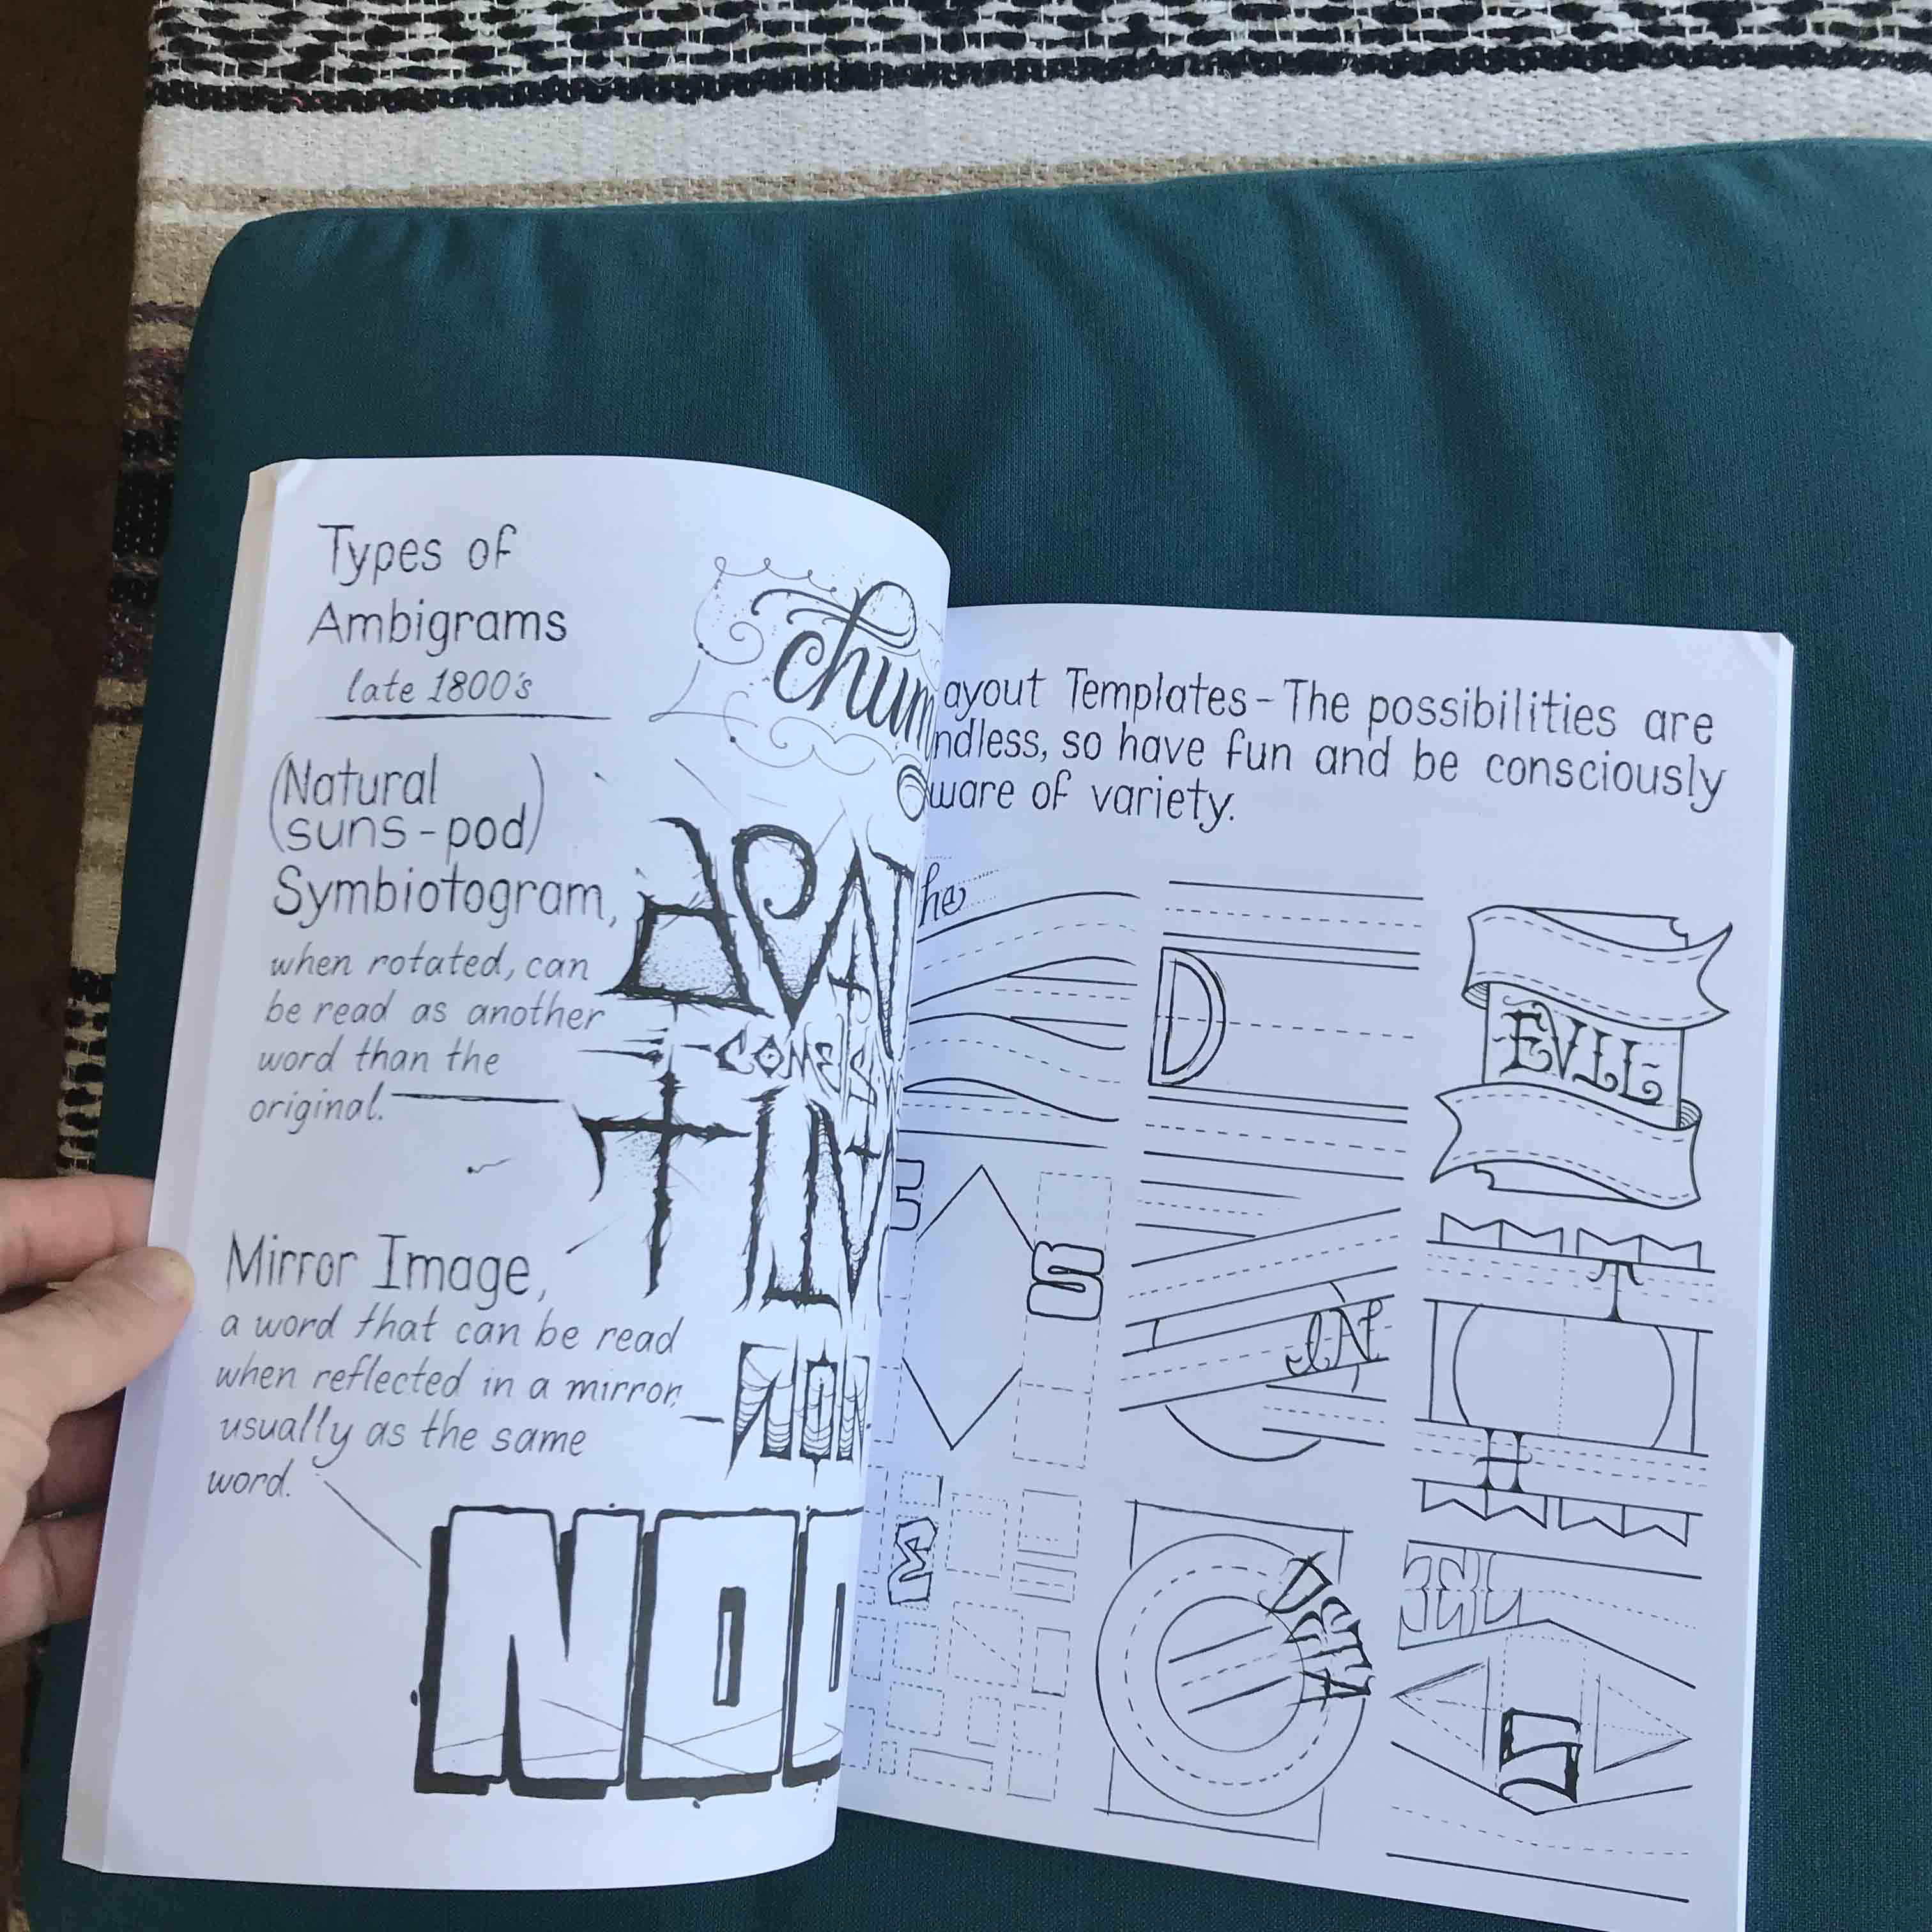 Types of
Ambigrams
late 1800's
(Natural
suns-pod)
Symbiotogram,
when rotated, can
be read as another
word than the
original.
Mirror Image,
a word that can be read
when reflected in a mirror,
usually as the same
word.
chum
COMES
ayout Templates - The possibilities are
ndless, so have fun and be consciously
ware of variety.
he
D
EVIL
S
IN
T
H
E